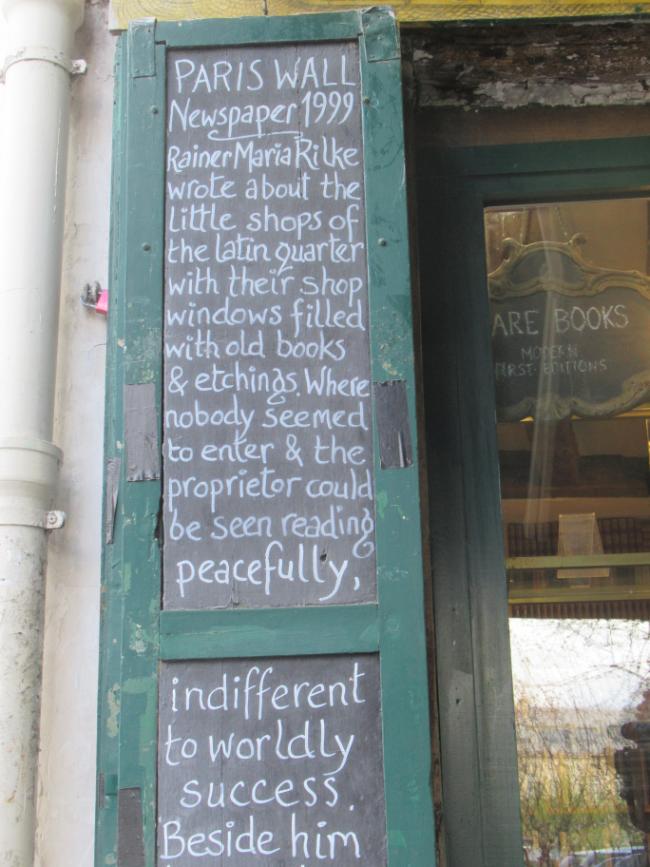 PARIS WALL
Newspaper 1999
Rainer Maria Rilke
wrote about the
little shops of
the latin quarter
with their shop
windows filled
with old books
& etchings. Where
nobody seemed
to enter & the
proprietor could
be seen reading
peacefully,
indifferent
to worldly
success.
Beside him
ARE BOOKS
MODERN
FIRST EDITIONS